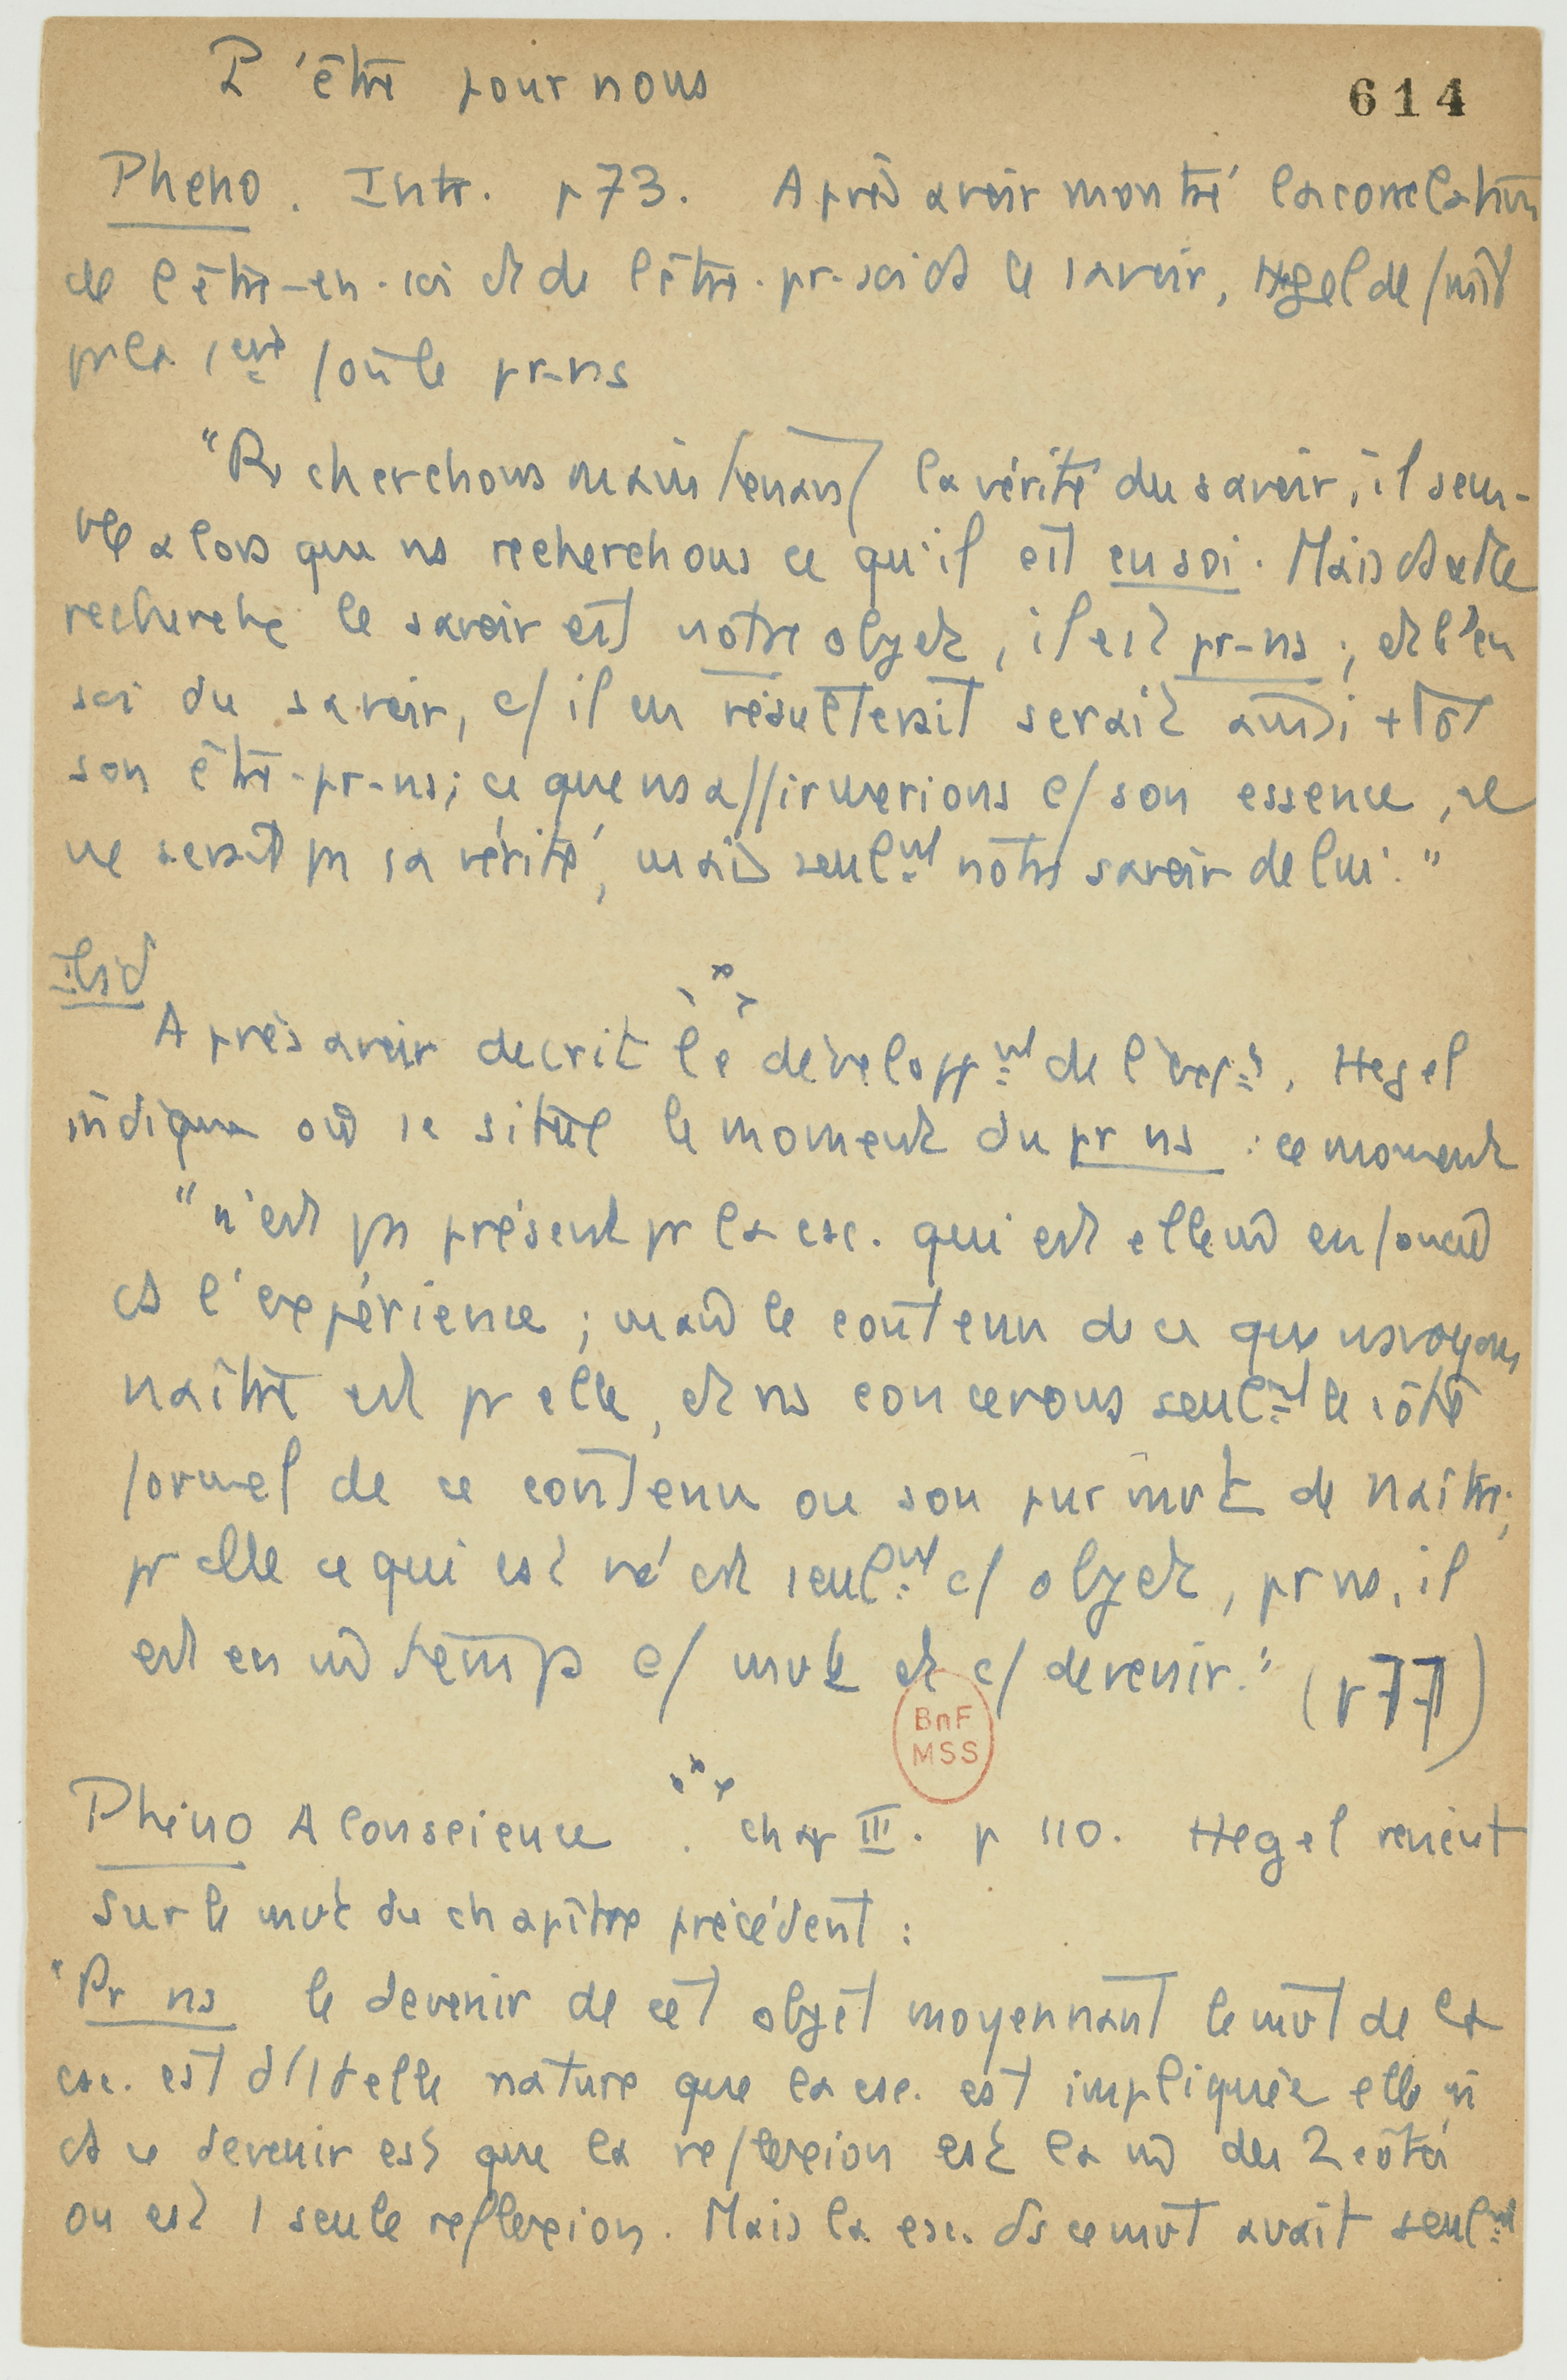 L'être pour nous
614
Pheno. Intr. p 73. Après avoir montré la correlation
de l'être-en-soi et de l'être-pr-soi ds le savoir, Hegel définit
pr la 1ère fois le pr-ns
"Recherchons maintenant la vérité du savoir, il sem-
ble alors que ns recherchons ce qu'il est en soi. Mais ds cette
recherche le savoir est notre objet, il est pr-ns ; et l'en
soi du savoir, c/ il en résulterait serait aussi +tôt
son être-pr-ns; ce que ns affirmerions c/ son essence, ce
ne serait pas sa vérité, mais seulmt notre savoir de lui."
Ibid
Après avoir decrit le développmt de l'expce, Hegel
indique où se situe le moment du pr ns : ce moment
"n'est pas présent pr la csc. qui est elle-m̂ enfoncée
ds l'expérience ; mais le contenu de ce que ns voyons
naître est pr elle, et ns concevons seulmt le côté
formel de ce contenu ou son pur mvt de naître;
pr elle ce qui est né est seulmt c/ objet, pr ns, il
est en m̂ temps c/ mvt et c/ devenir." (p 77)
BnF
MSS
Phéno A Conscience . chap III. p 110. Hegel revient
sur le mvt du chapitre précédent :
"Pr ns le devenir de cet objet moyennant le mvt de la
csc. est d'1 telle nature que la csc. est impliquée elle m̂
ds ce devenir est que la reflexion est la m̂ des 2 côtés
ou est 1 seule reflexion. Mais la csc. ds ce mvt avait seulmt